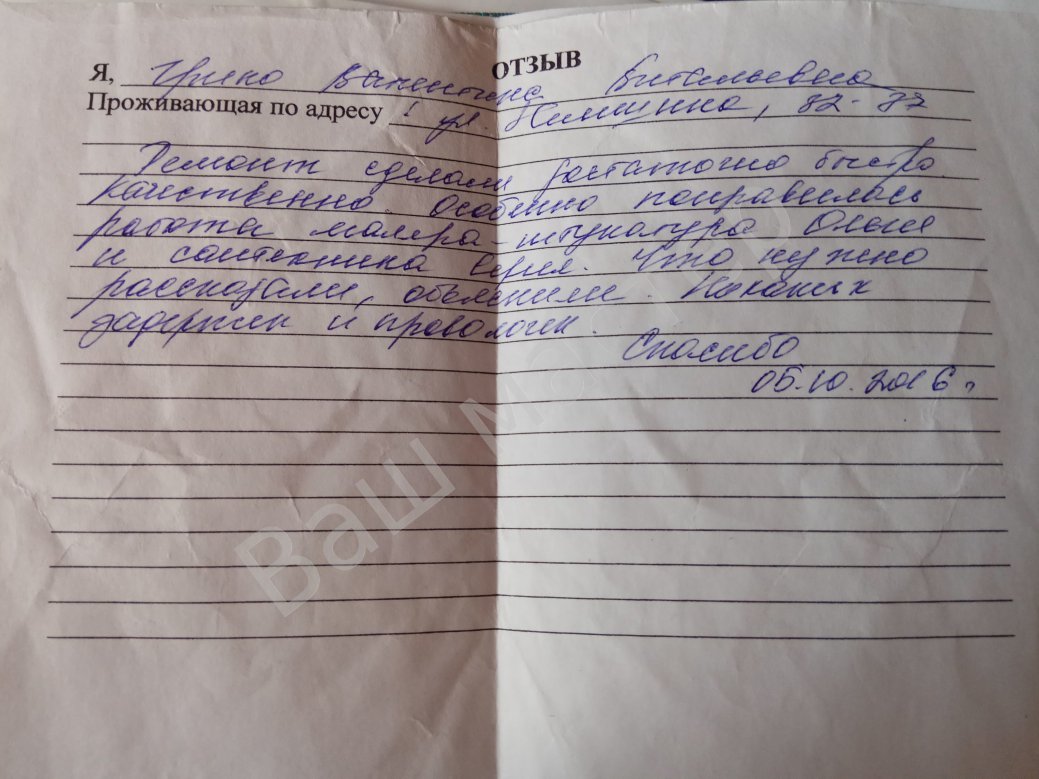 ОТЗЫВ
Я, Грико Валентина Витальевна
Проживающая по адресу: ул. 82-87
Ремонт сделали достаточно быстро.
Качественно. Особенно понравилась
работа маляра-штукатура Ольги
и сантехника Что нужно
рассказали, объяснили. Никаких
задержек и проволочек.
Спасибо
05.10.2016г.
Ваш Мастер